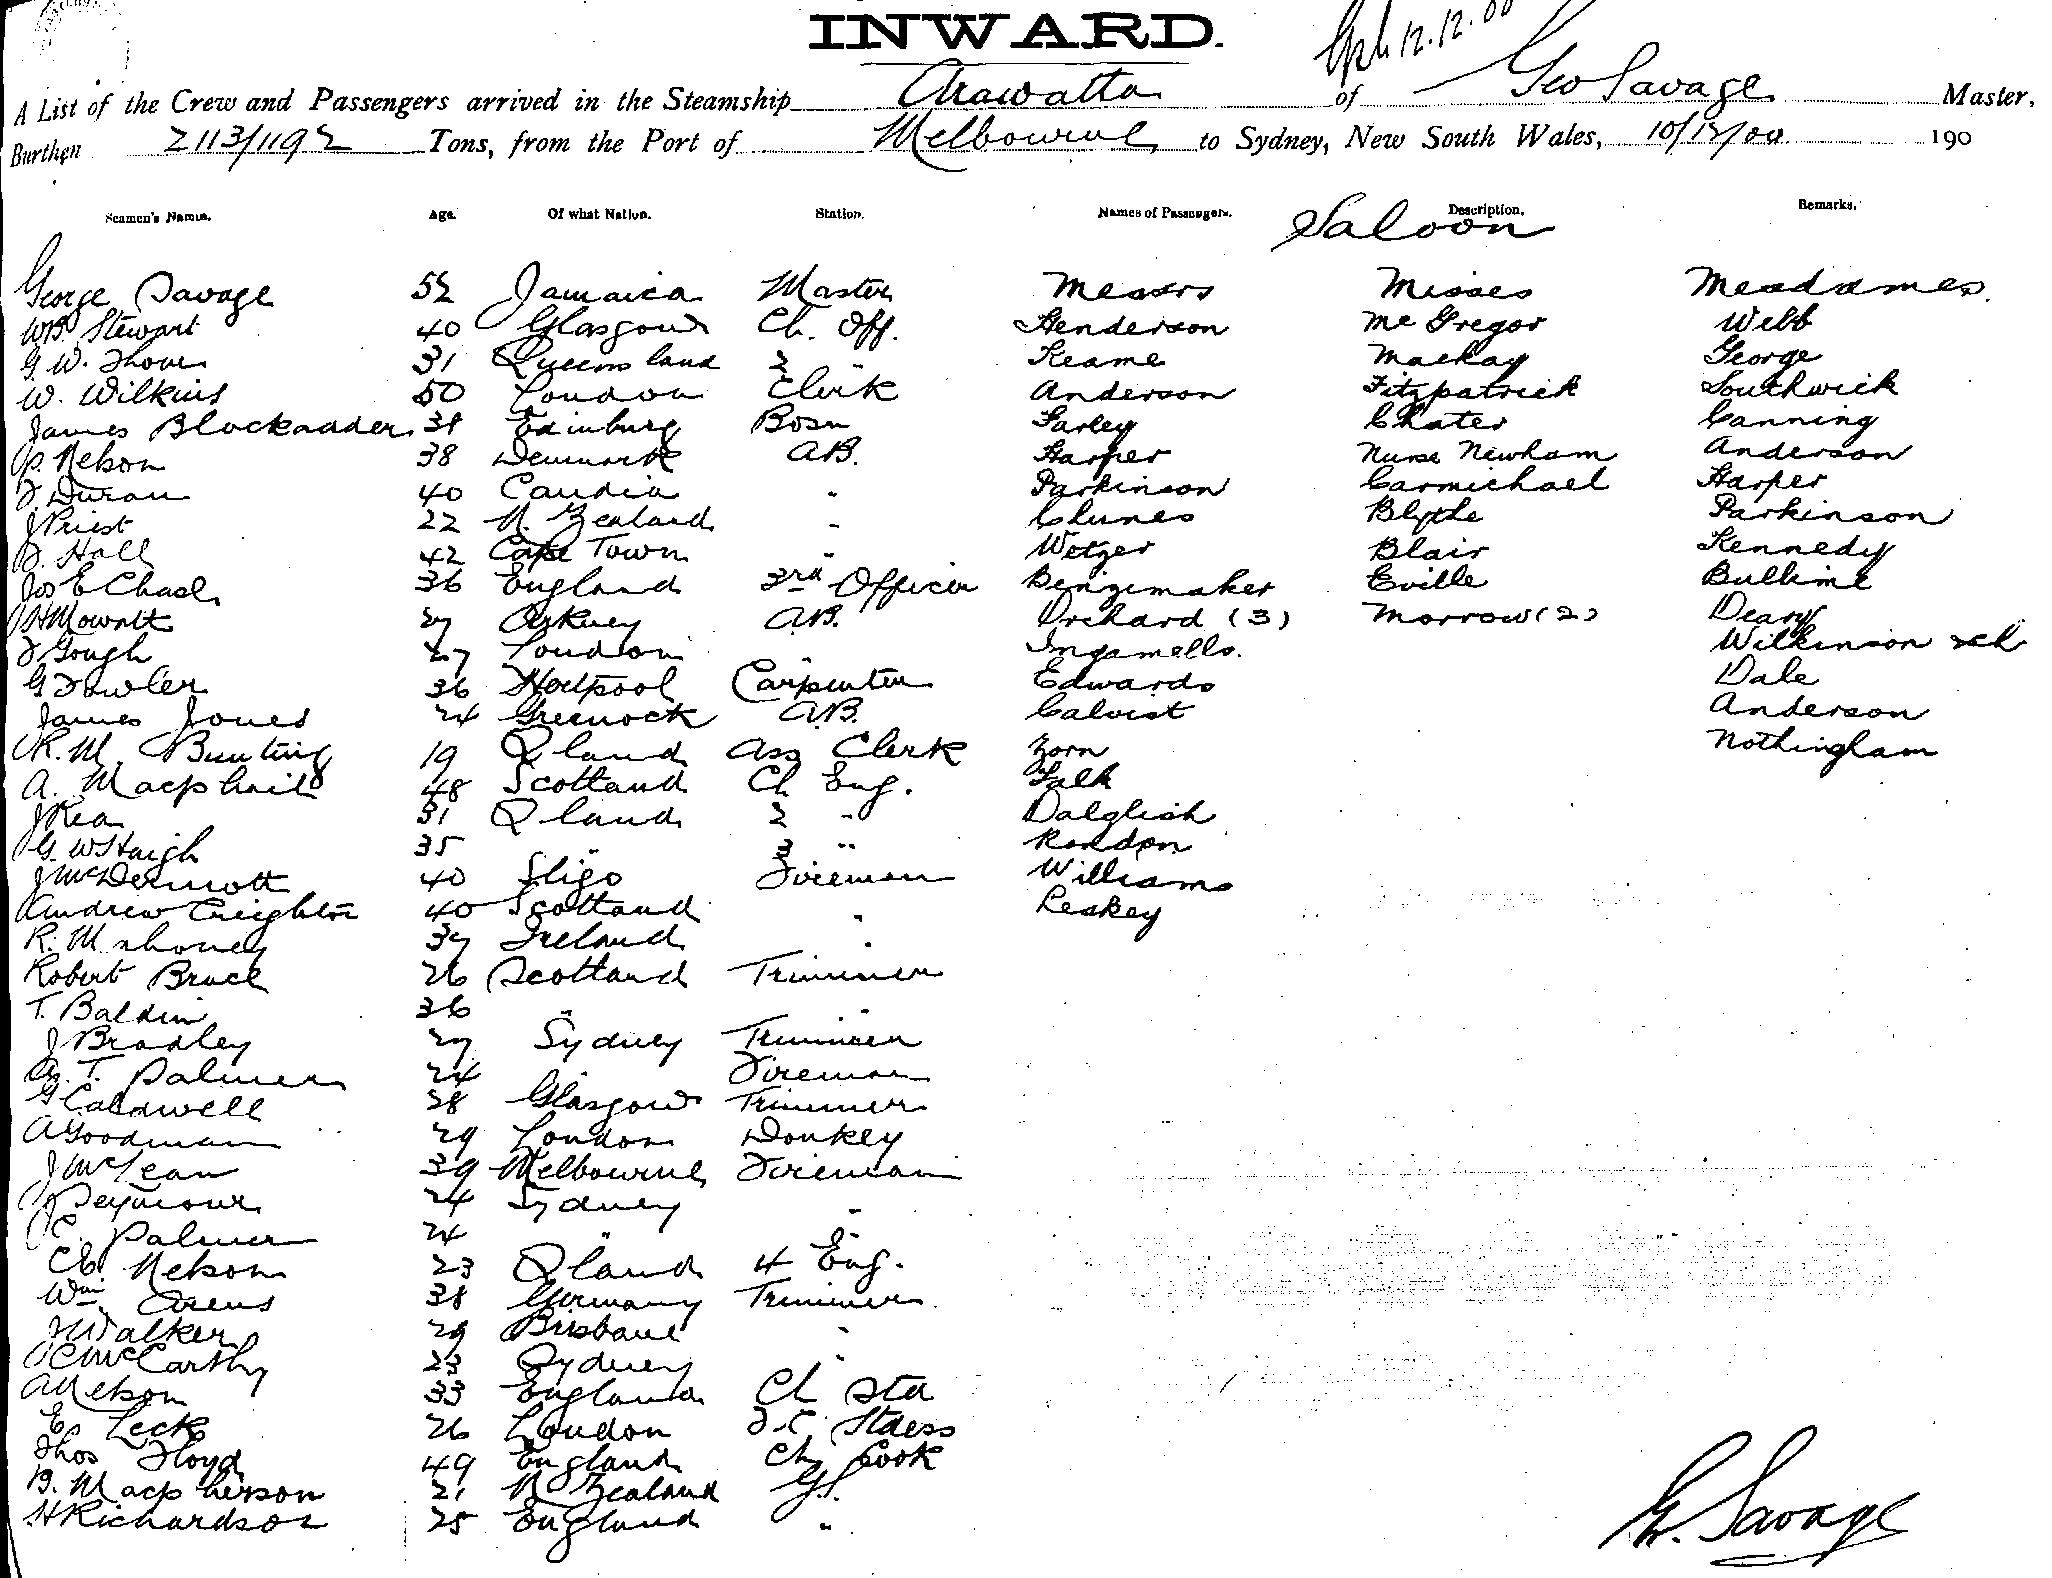 INWARD.
12.12.00
A List of the Crew and Passengers arrived in the Steamship Arawatta of Geo Savage Master,
Burthen 2113/1192 Tons, from the Port of Melbourne to Sydney, New South Wales, 10/12/00 190
Seamen's Names. Age. Of what Nation. Station. Names of Passengers. Description. Remarks.
Saloon
George Savage 52 Jamaica Master Messrs Misses Mesdames
WB Stewart 40 Glasgow Ch. Off. Henderson McGregor Webb
G. W. 31 Queensland 2 " Keame Mackay George
W. Wilkins 50 London Clerk Anderson Fitzpatrick Southwick
James Blackadder 38 Edinburg Bosn Farley Chater Canning
P. Nelson 38 Denmark A.B. Harper Nurse Newham Anderson
J Duran 40 Candia " Parkinson Carmichael Harper
J Priest 22 N. Zealand " Clunes Blythe Parkinson
J. Hall 42 Cape Town " Wetzer Blair Kennedy
Jos E Chase 36 England 3rd Officer Benzemaker Eville
H Mowatt 27 Orkney A.B. Orchard (3) Morrow (2) Deary
J Gough 27 London Ingamells. Wilkinson & ch
G Fowler 36 Carpenter Edwards Dale
James Jones 24 Greenock A.B. Anderson
R. M. Bunting 19 Q land Ass Clerk Zorn Nothingham
A. Macphail 48 Scotland Ch Eng. Falk
J Rea 31 Q land 2 " Dalglish
G. W Haigh 35 " 3 "
J McDermott 40 Sligo Fireman Williams
Andrew Creighton 40 Scotland " Leskey
R. Mahoney 37 Ireland "
Robert Bruce 26 Scotland Trimmer
T. Baldin 36 "
J Bradley 27 Sydney Trimmer
T. Palmer 24 Fireman
G Caldwell 28 Glasgow Trimmer
A Goodman 29 London Donkey
J McLean 39 Melbourne Fireman
J Seymour 24 Sydney "
C. Palmer 24 "
Ch Nelson 23 Q land 4 Eng.
Wm Arens 38 Germany Trimmer
J Walker 29 Brisbane "
C McCarthy 23 Sydney "
A Nelson 33 England Ch Std
E. Leck 26 London F.C. Stdess
Thos Floyd 49 England Ch Cook
B. Macpherson 21 N Zealand G.S.
H Richardson 25 England "
G. Savage